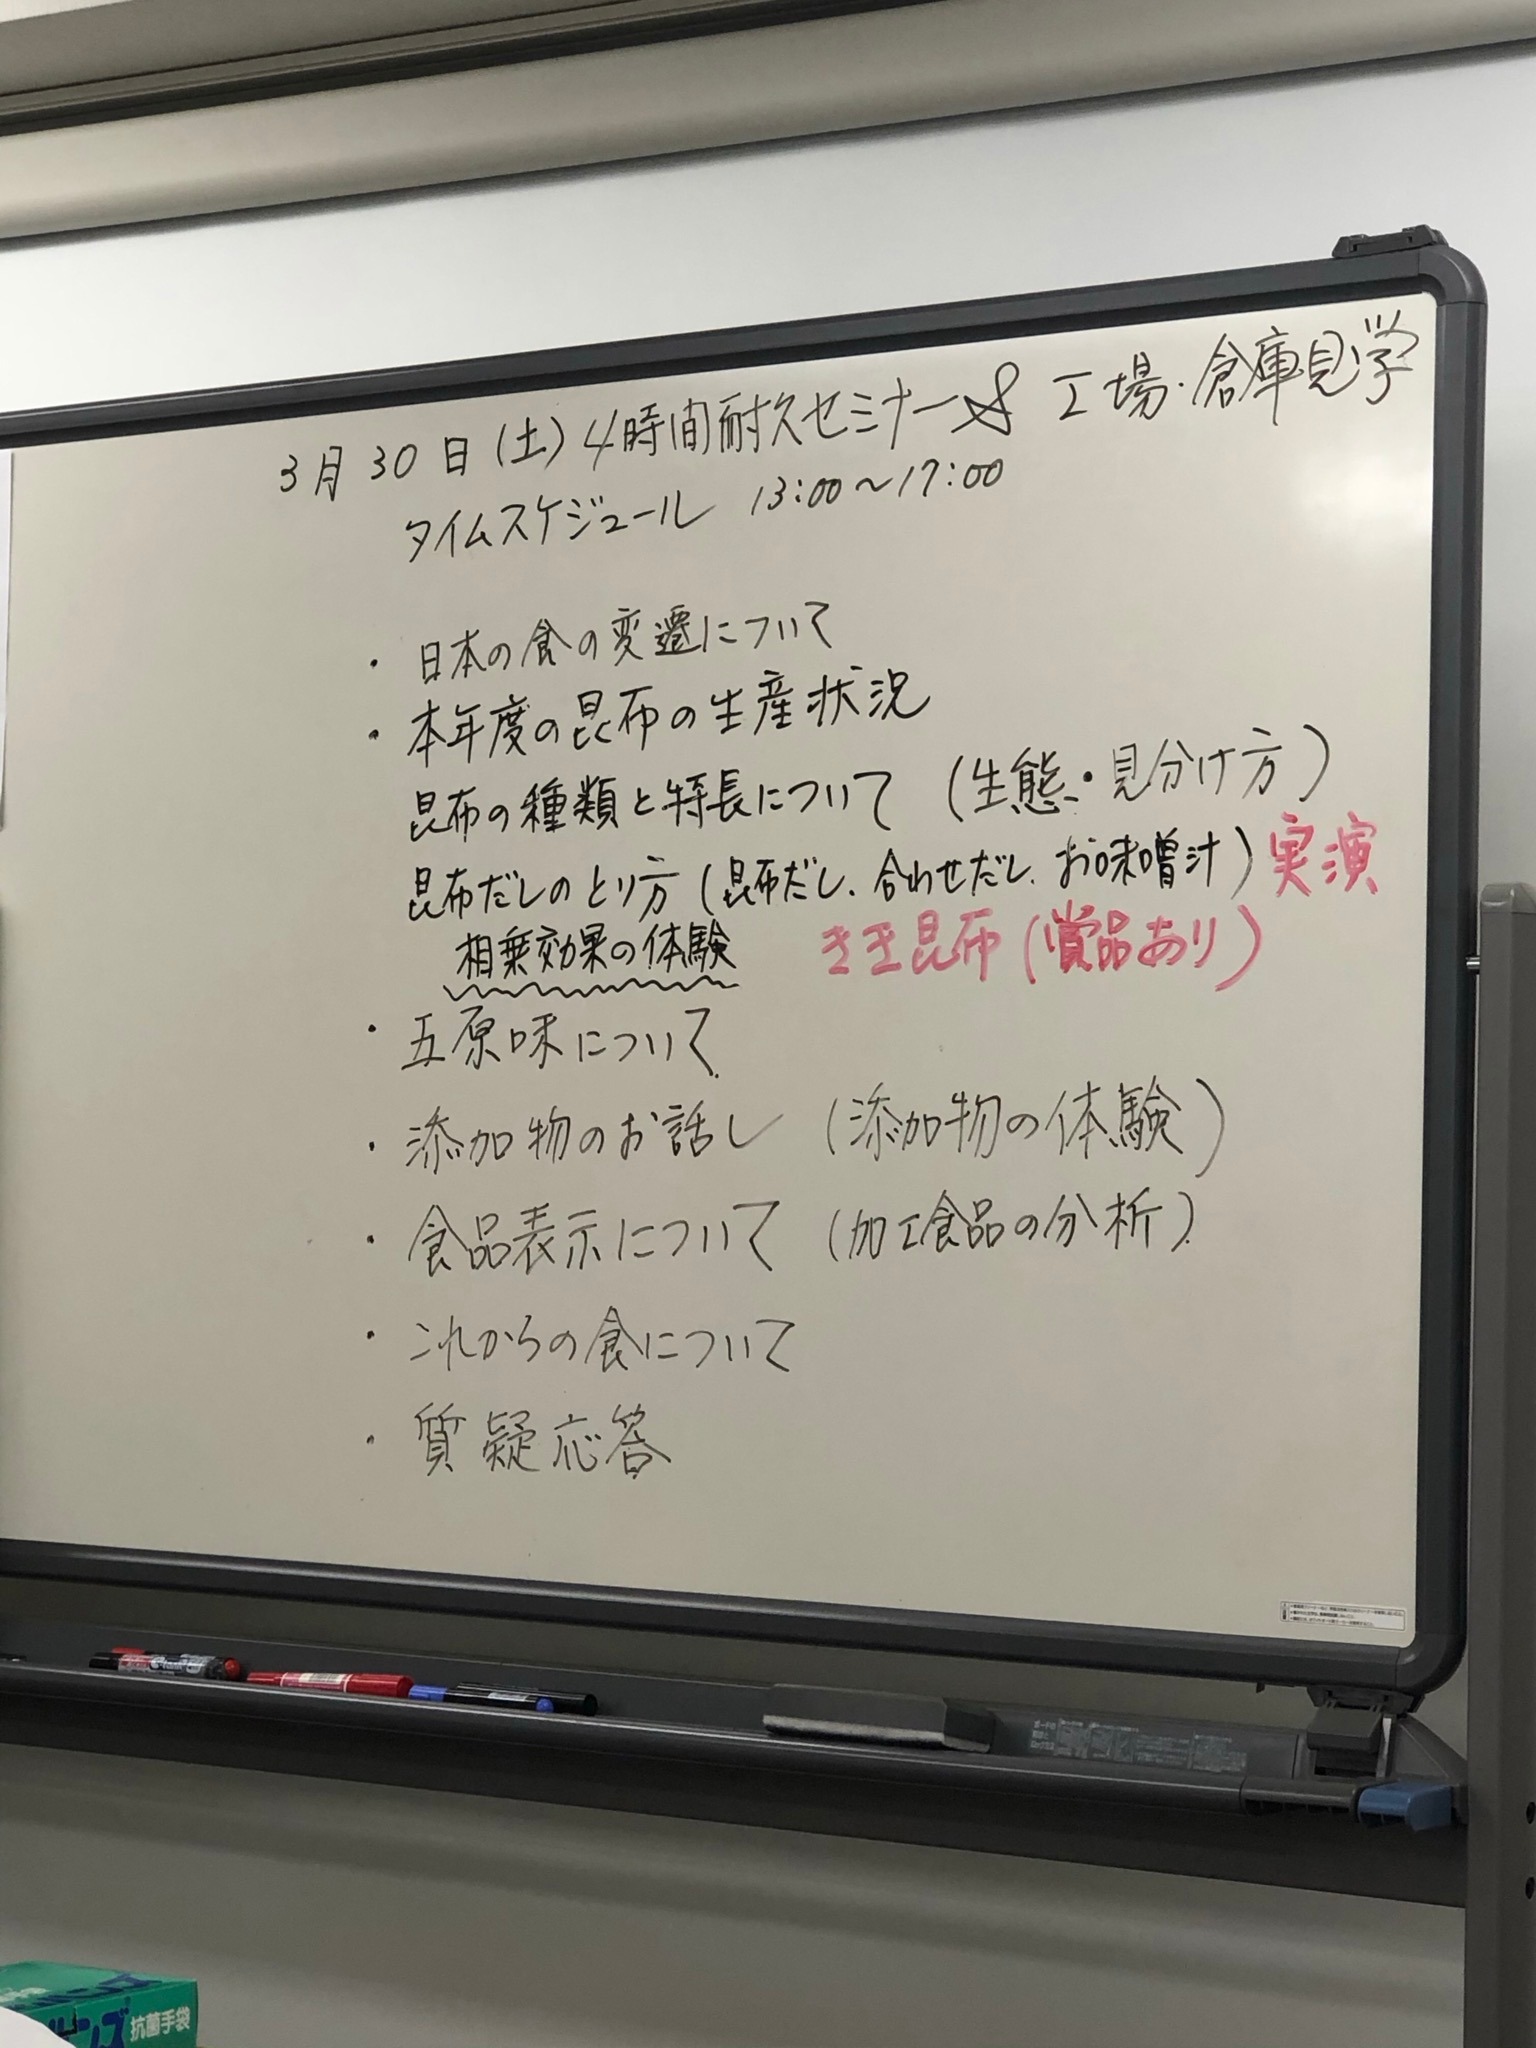 3月30日(土)4時間耐久セミナー& 工場・倉庫見学
タイムスケジュール 13:00〜17:00
・日本の食の変遷について
・本年度の昆布の生産状況
昆布の種類と特長について (生態・見分け方)
昆布だしのとり方(昆布だし、合わせだし、お味噌汁)実演
相乗効果の体験 きき昆布(賞品あり)
・五原味について
・添加物のお話し (添加物の体験)
・食品表示について (加工食品の分析)
・これからの食について
・質疑応答
抗菌手袋